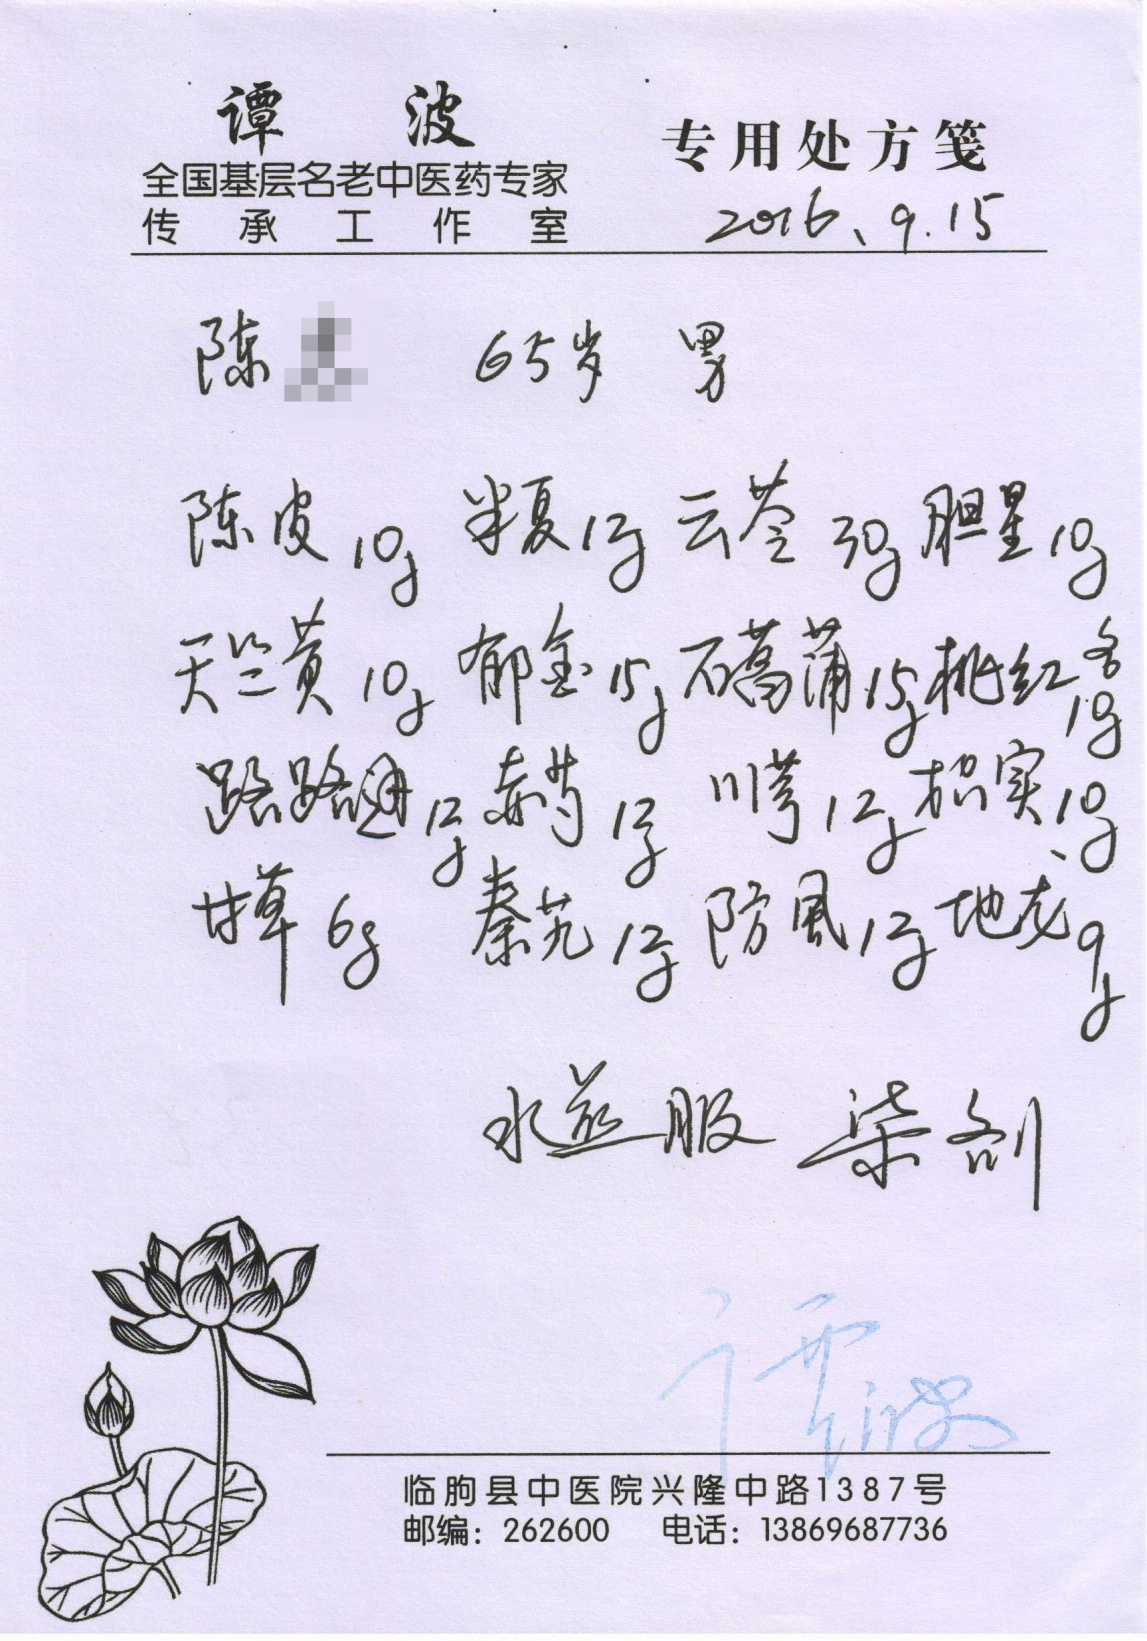 谭 波
全国基层名老中医药专家
传承工作室
专用处方笺
2016、9.15
陈 65岁 男
陈皮10g 半夏12g 云苓30g 胆星10g
天竺黄10g 郁金15g 石菖蒲15g 桃红各10g
路路通12g 赤芍12g 川芎12g 枳实10g
甘草6g 秦艽12g 防風12g 地龙9g
水煎服 柒剂
谭波
临朐县中医院兴隆中路1387号
邮编：262600 电话：13869687736